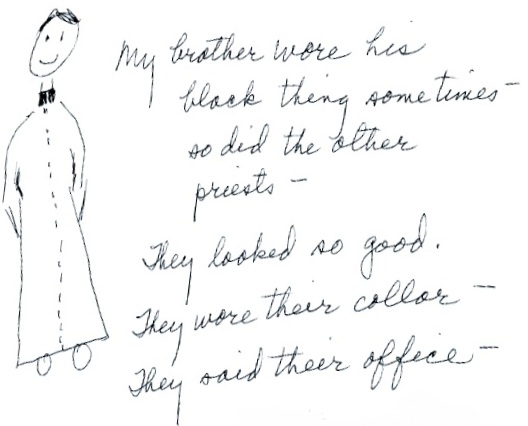 My brother wore his
black thing sometimes—
so did the other
priests—
They looked so good.
They wore their collar—
They said their office—